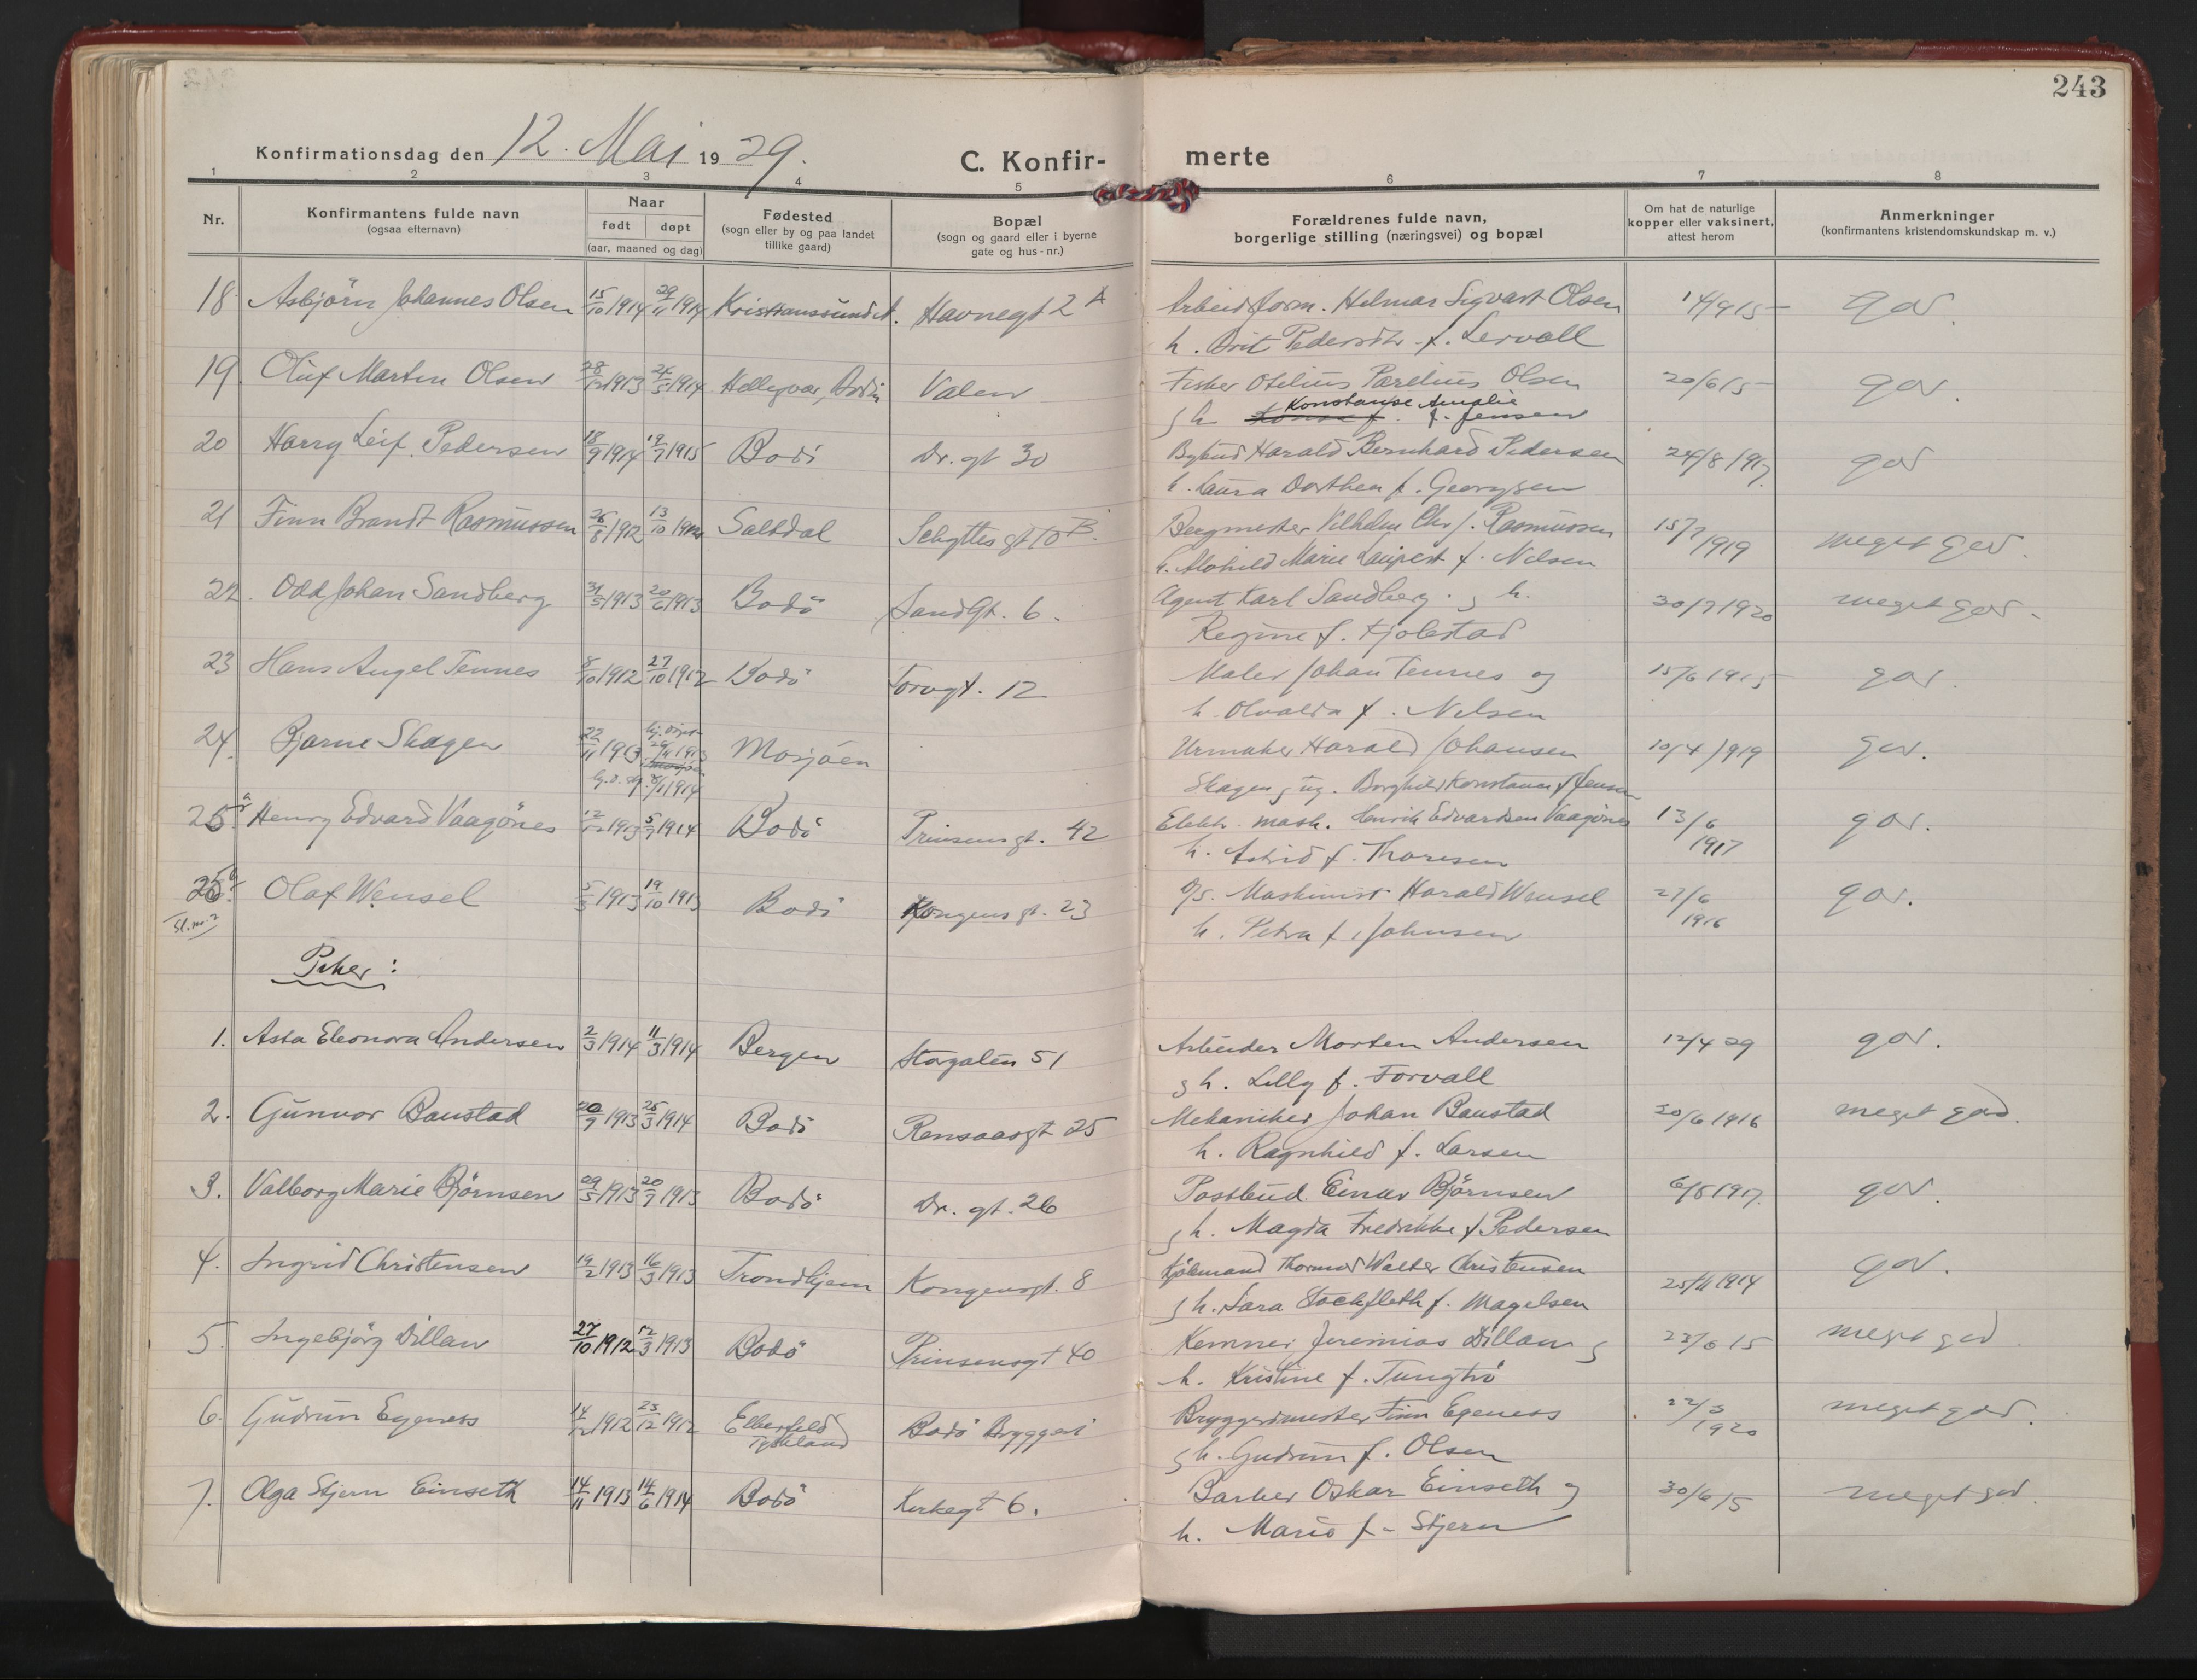 243
Konfirmationsdag den 12. Mai 1929.
C. Konfirmerte
1 2 3 4 5 6 7 8
Nr.
Konfirmantens fulde navn
(ogsaa efternavn)
Naar
født døpt
(aar, maaned og dag)
Fødested
(sogn eller by og paa landet
tillike gaard)
Bopæl
(sogn og gaard eller i byerne
gate og hus-nr.)
Forældrenes fulde navn,
borgerlige stilling (næringsvei) og bopæl
Om hat de naturlige
kopper eller vaksinert,
attest herom
Anmerkninger
(konfirmantens kristendomskundskap m. v.)
18. Asbjörn Johannes Olsen 15/10 1914 29/11 1914 Kristianssund N. Havnegt 2 A Arbeidsform. Hilmar Sigvart Olsen 14/9 15 god.
h. Brit Pedersdtr f. Lervoll
19. Oluf Martin Olsen 28/12 1913 24/5 1914 Helligvær, Bodin Valen Fisker Otelius Parelius Olsen 20/6 15 god.
g h Konstanse Amalie f. Jensen
20 Harry Leif Pedersen 18/9 1914 19/7 1915 Bodö Dr. gt 30 Bybud Harald Bernhard Pedersen 24/8 1917. god
h. Laura Dorthea f. Georgsen
21 Finn Brandt Rasmussen 26/8 1912 13/10 1912 Saltdal Schyttes gt 10 B. Bergmester Vilhelm Chr. Rasmussen 15/7 1919 meget god.
h. Marie f. Nilsen
22. Odd Johan Sandberg 31/3 1913 20/6 1913 Bodö Sandgt. 6. Agent Karl Sandberg g h. 30/7 1920 meget god.
Regine f. Fjolestad
23 Hans Angel Tennes 8/10 1912 27/10 1912 Bodö Torvgt. 12 Maler Johan Tennes og 15/6 1915 god.
h. Olvalda f. Nilsen
24. Bjarne Skagen 22/11 1913 Mosjöen Urmaker Harald Johansen 10/4 1919 god.
Skagen g ug. Borghild Konstanse f Jensen
25 a Henry Edvard Vaagönes 12/12 1913 5/7 1914 Bodö Prinsensgt. 42 Elektr. mask. Henrik Edvardsen Vaagönes 13/6 1917 god.
h. Astrid f. Thoresen
25 b Olaf Wensel 5/3 1913 19/10 1913 Bodö Kongensgt. 23 D/S. Maskinist Harald Wensel 27/6 1916 god.
h. Petra f. Johnsen
Piker:
1. Asta Eleonora Andersen 2/3 1914 11/3 1914 Bergen Storgaten 51 Arbeider Morten Andersen 12/4 29 god.
g h. Lilly f. Forvall
2. Gunvor Baustad 20/9 1913 25/3 1914 Bodö Rensaasgt 25 Mekaniker Johan Baustad 20/6 1916 meget god.
h. Ragnhild f. Larsen
3. Valborg Marie Björnsen 29/5 1913 20/7 1913 Bodö Dr. gt. 26 Postbud Einar Björnsen 6/8 1917. god.
g h. Magda Fredrikke f Pedersen
4. Ingrid Christensen 19/2 1913 16/3 1913 Trondhjem Kongensgt. 8 Sjömand Thormod Walter Christensen 25/11 1914 god.
g h. Sara Stockfleth f. Magelsen
5. Ingebjörg Dillan 27/10 1912 12/3 1913 Bodö Prinsensgt 40 Kemner Jeremias Dillan g 23/6 15 meget god
h. Kristine f. Tungtrö
6. Gudrun Egeness 14/2 1912 23/12 1912 Elberfeld Tyskland Bodö Bryggeri Bryggerimester Finn Egeness 22/3 1920 meget god.
g h. Gudrun f. Olsen
7. Olga Stjern Einseth 14/11 1913 14/6 1914 Bodö Kirkegt 6. Barber Oskar Einseth og 30/6 15 meget god.
h. Marie f. Stjern